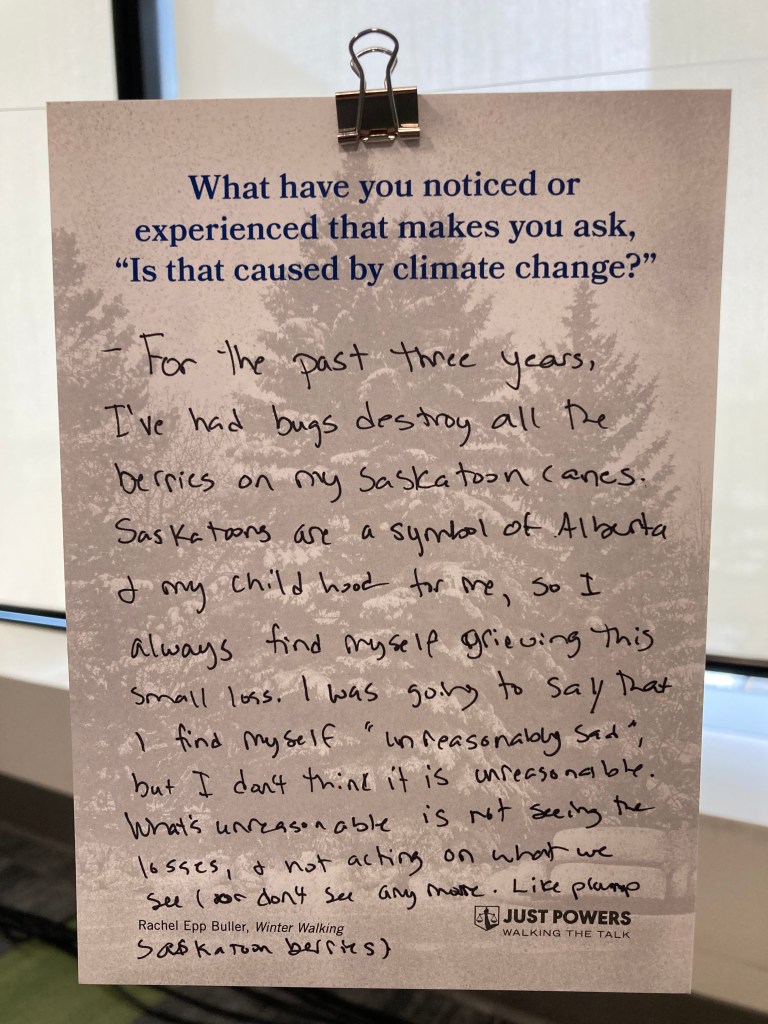 What have you noticed or
experienced that makes you ask,
“Is that caused by climate change?”
– For the past three years,
I've had bugs destroy all the
berries on my Saskatoon canes.
Saskatoons are a symbol of Alberta
& my childhood for me, so I
always find myself grieving this
small loss. I was going to say that
I find myself "unreasonably sad",
but I don't think it is unreasonable.
What's unreasonable is not seeing the
losses, & not acting on what we
see (or don't see any more. Like plump
Rachel Epp Buller, Winter Walking
JUST POWERS
WALKING THE TALK
Saskatoon berries)